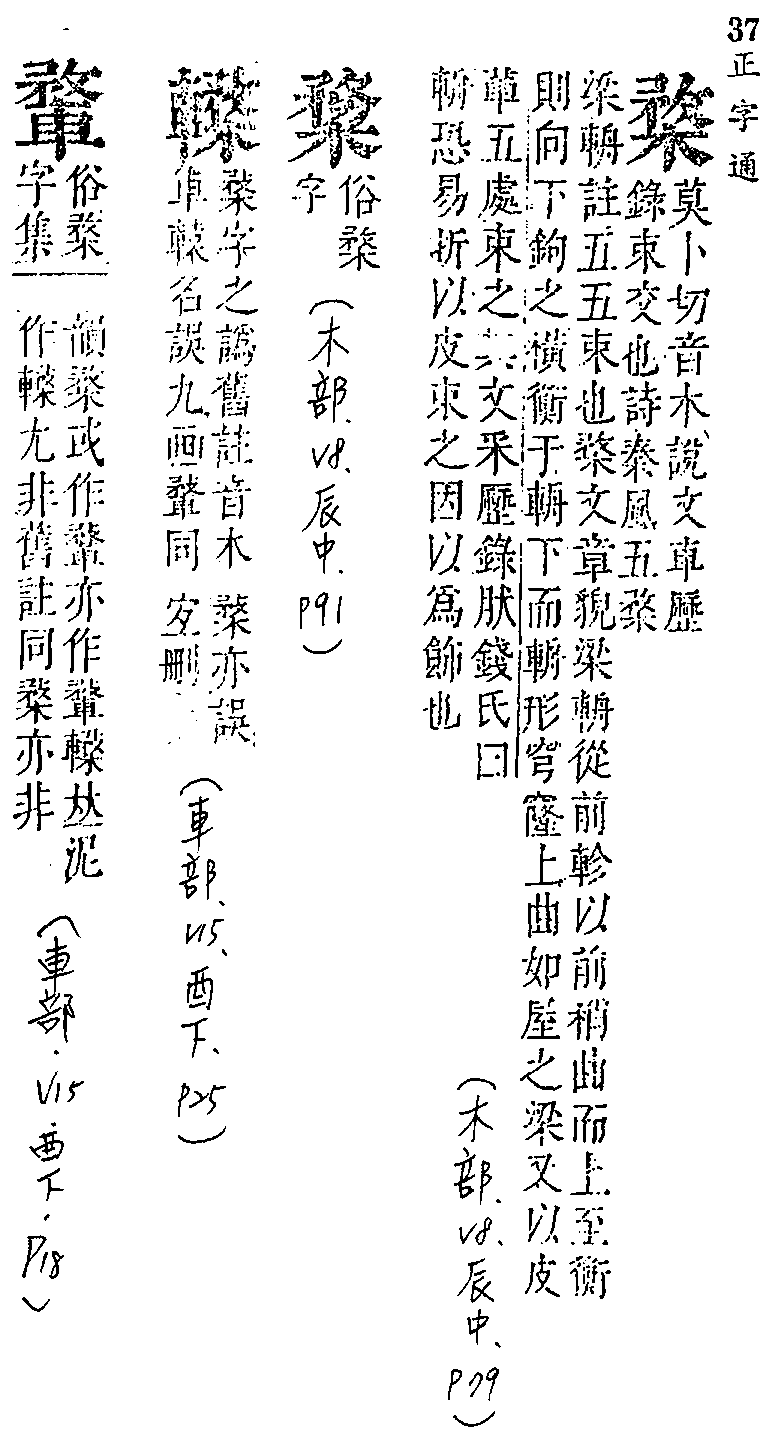 37正字通
楘莫卜切音木說文車歷
錄束交也詩秦風五楘
梁輈註五五束也楘文章貌梁輈從前軫以前稍曲而上至衡
則向下鉤之橫衡于輈下而輈形穹窿上曲如屋之梁又以皮
革五處束之其文采歷錄肰錢氏曰
輈恐易折以皮束之因以爲飾也
(木部、V8、辰中、P79)
俗楘
字
(木部、V8、辰中、P91)
楘字之譌舊註音木
車轅名誤九画
同
楘亦誤
宜删
(車部、V15、酉下、P25)
俗楘
字集
韻楘或作
亦作
泥
作
尤非舊註同楘亦非
(車部、V15、酉下、P18)